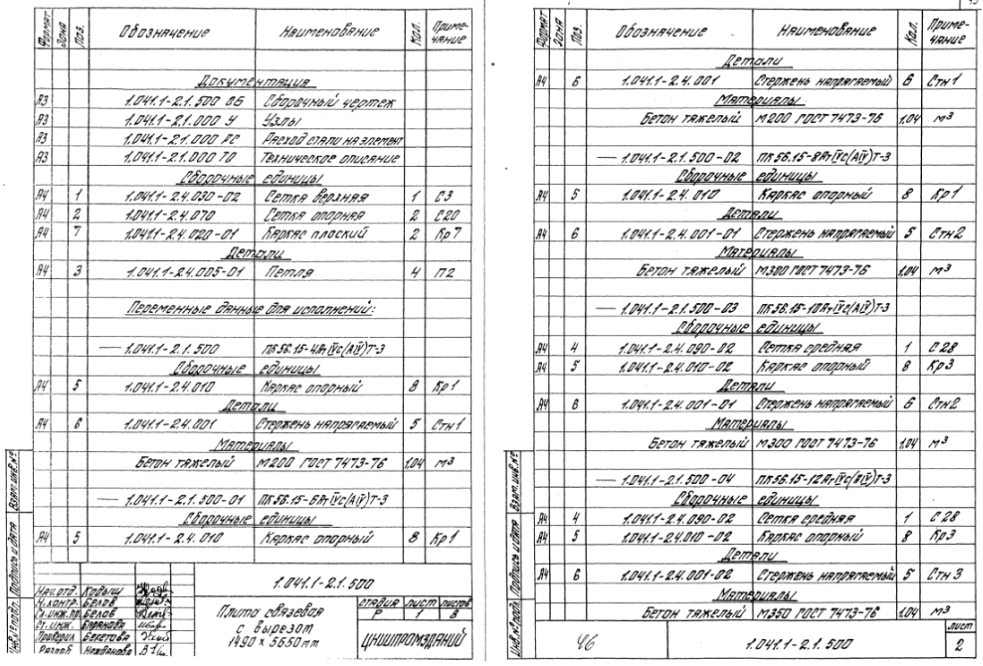 Формат Зона Поз. Обозначение Наименование Кол. Приме-чание
Документация
А3 1.041.1-2.1.500 СБ Сборочный чертеж
А3 1.041.1-2.1.000 У Узлы
А3 1.041.1-2.1.000 РС Расход стали на элемент
А3 1.041.1-2.1.000 ТО Техническое описание
Сборочные единицы
А4 1 1.041.1-2.4.030-02 Сетка верхняя 1 С3
А4 2 1.041.1-2.4.070 Сетка опорная 2 С20
А4 7 1.041.1-2.4.020-01 Каркас плоский 2 Кр7
Детали
А4 3 1.041.1-2.4.005-01 Петля 4 П2
Переменные данные для исполнений:
— 1.041.1-2.1.500 ПК56.15-4АтIVС(АIV)Т-3
Сборочные единицы
А4 5 1.041.1-2.4.010 Каркас опорный 8 Кр1
Детали
А4 6 1.041.1-2.4.001 Стержень напрягаемый 5 Стн1
Материалы
Бетон тяжелый М200 ГОСТ 7473-76 1,04 м3
— 1.041.1-2.1.500-01 ПК56.15-6АтIVС(АIV)Т-3
Сборочные единицы
А4 5 1.041.1-2.4.010 Каркас опорный 8 Кр1
Инв.№ подл. Подпись и дата Взам.инв.№
1.041.1-2.1.500
Нач.отд. Кодыш
Н.контр. Белов
Гл.инж.пр. Белов
Ст.инж.
Проверил
Разраб.
Плита связевая
с вырезом
1490 × 5650 мм
стадия лист листов
Р 1 8
ЦНИИПРОМЗДАНИЙ
Формат Зона Поз. Обозначение Наименование Кол. Приме-чание
Детали
А4 6 1.041.1-2.4.001 Стержень напрягаемый 6 Стн1
Материалы
Бетон тяжелый М200 ГОСТ 7473-76 1,04 м3
— 1.041.1-2.1.500-02 ПК56.15-8АтIVС(АIV)Т-3
Сборочные единицы
А4 5 1.041.1-2.4.010 Каркас опорный 8 Кр1
Детали
А4 6 1.041.1-2.4.001-01 Стержень напрягаемый 5 Стн2
Материалы
Бетон тяжелый М300 ГОСТ 7473-76 1,04 м3
— 1.041.1-2.1.500-03 ПК56.15-10АтIVС(АIV)Т-3
Сборочные единицы
А4 4 1.041.1-2.4.090-02 Сетка средняя 1 С28
А4 5 1.041.1-2.4.010-02 Каркас опорный 8 Кр3
Детали
А4 6 1.041.1-2.4.001-01 Стержень напрягаемый 6 Стн2
Материалы
Бетон тяжелый М300 ГОСТ 7473-76 1,04 м3
— 1.041.1-2.1.500-04 ПК56.15-12АтIVС(АIV)Т-3
Сборочные единицы
А4 4 1.041.1-2.4.090-02 Сетка средняя 1 С28
А4 5 1.041.1-2.4.010-02 Каркас опорный 8 Кр3
Детали
А4 6 1.041.1-2.4.001-02 Стержень напрягаемый 5 Стн3
Материалы
Бетон тяжелый М350 ГОСТ 7473-76 1,04 м3
Инв.№ подл. Подпись и дата Взам.инв.№
46 1.041.1-2.1.500 лист
2